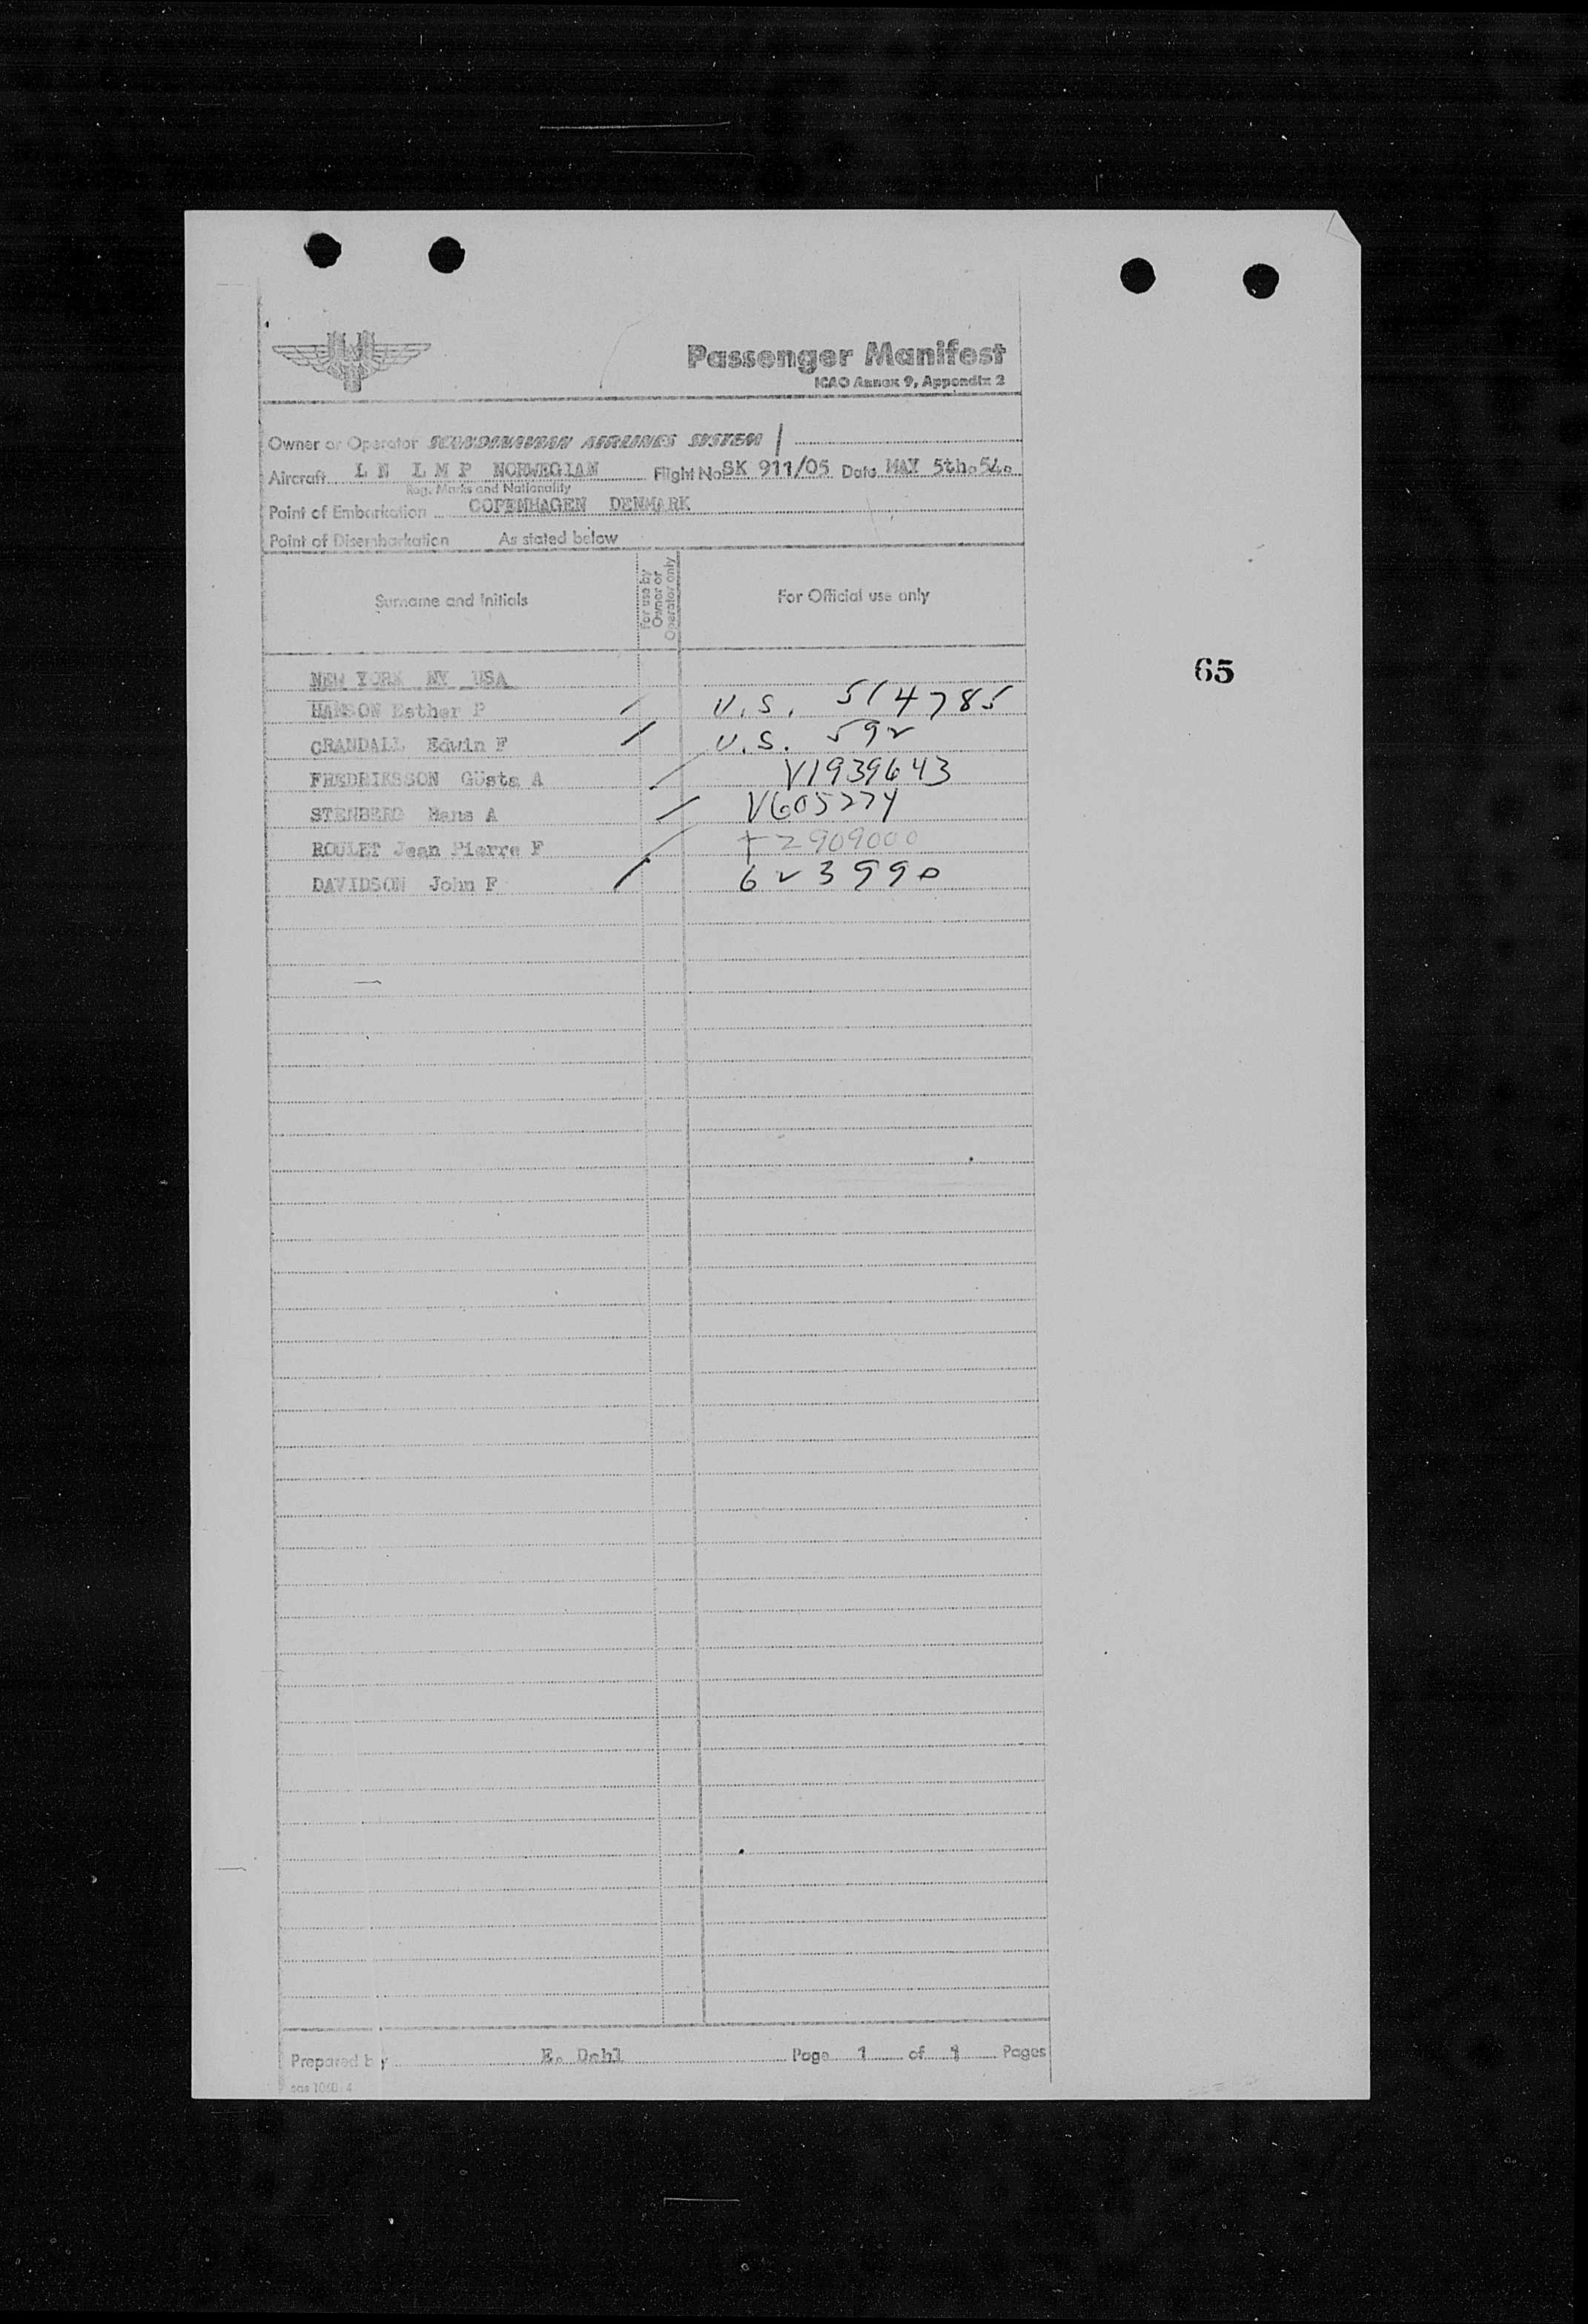 Passenger Manifest
ICAO Annex 9, Appendix 2
Owner or Operator SCANDINAVIAN AIRLINES SYSTEM
Aircraft L N L M P NORWEGIAN Flight No SK 911/05 Date MAY 5th.54.
Reg. Marks and Nationality
Point of Embarkation COPENHAGEN DENMARK
Point of Disembarkation As stated below
Surname and Initials
For use by Owner or Operator only
For Official use only
65
NEW YORK NY USA
HANSON Esther P / U.S. 514785
CRANDALL Edwin F / U.S. 592
FREDRIKSSON Gösta A / V1939643
STENBERG Hans A / V605274
ROULET Jean Pierre F / 2909000
DAVIDSON John F / 623990
Prepared by E. Dahl Page 1 of 1 Pages
sas 1060-4